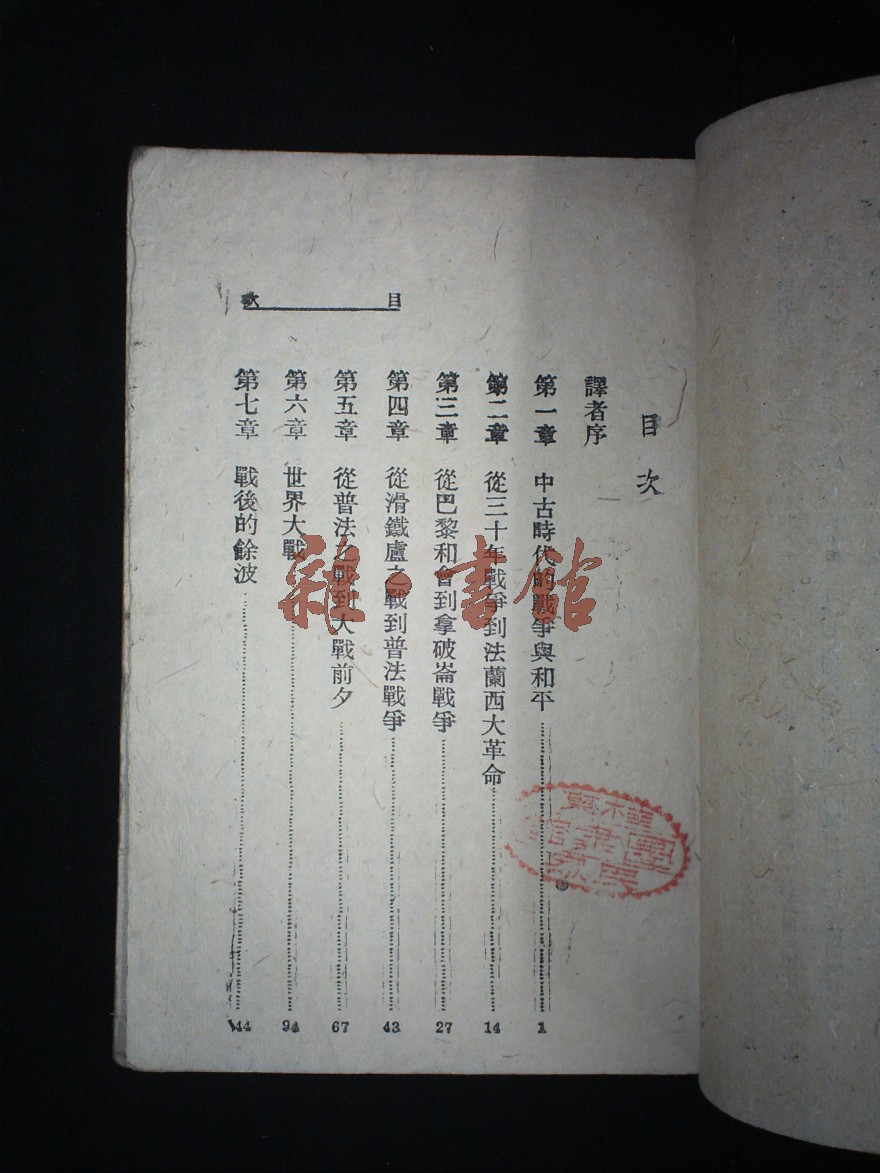 目次
目次
譯者序
第一章 中古時代的戰爭與和平 1
第二章 從三十年戰爭到法蘭西大革命 14
第三章 從巴黎和會到拿破崙戰爭 27
第四章 從滑鐵盧之戰到普法戰爭 43
第五章 從普法之戰到大戰前夕 67
第六章 世界大戰 94
第七章 戰後的餘波 144
雜·書館